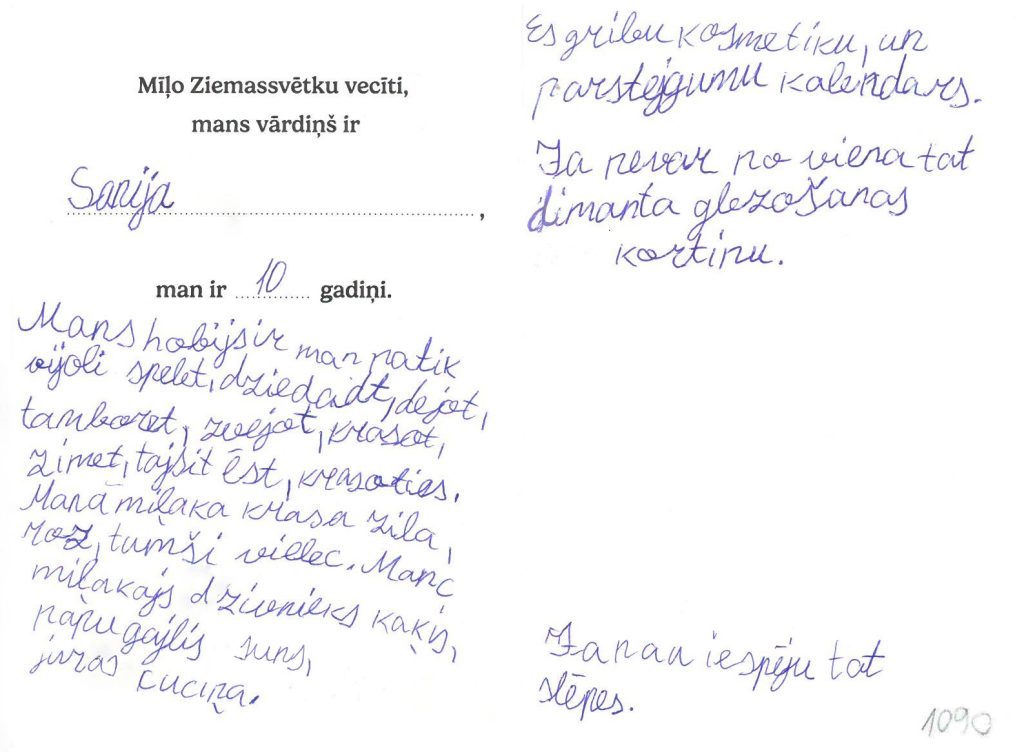 Mīļo Ziemassvētku vecīti,
mans vārdiņš ir
Sanija,
man ir 10 gadiņi.
Mans hobijs ir man patik
vijoli spelet, dziedadt, dejot,
tamboret, zvejot, krasot,
zimet, tajsit ēst, krasoties.
Manā miļaka krasa zila,
roz, tumši viellec. Manc
miļakajs dzivnieks kaķis,
papugajlis suns,
juras cuciņa.
Es gribu kosmetiku, un
parstejgumu kalendars.
Ja nevar no viena tat
dimanta glezošanas
kartinu.
Ja nan iespēju tat
slēpes.
1090